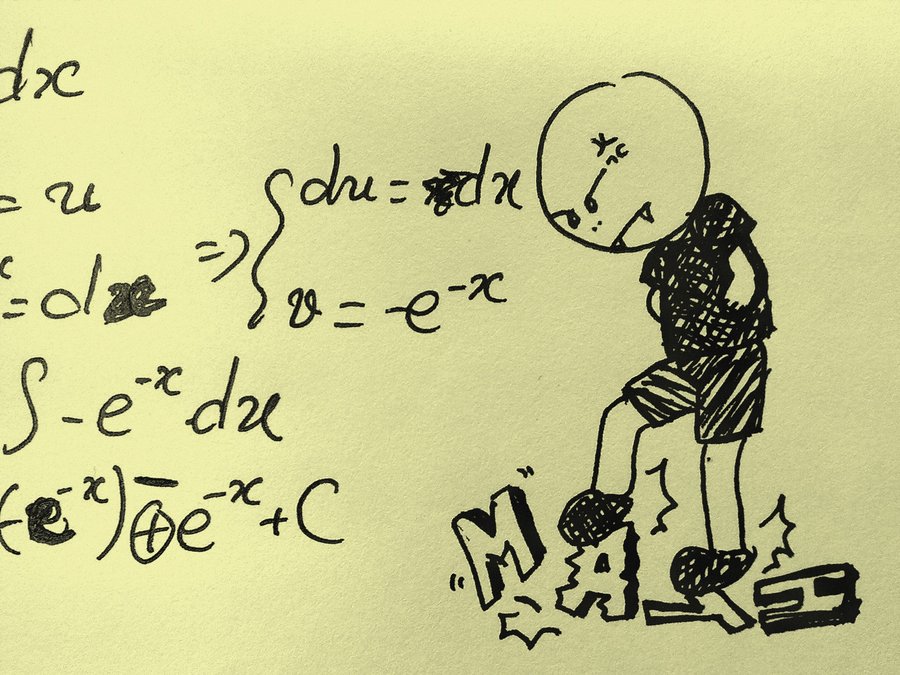 dx
= u
⇒ { du = dx
x = dx
v = -e^{-x}
∫ -e^{-x} dx
(-e^{-x}) - e^{-x} + C
MATH